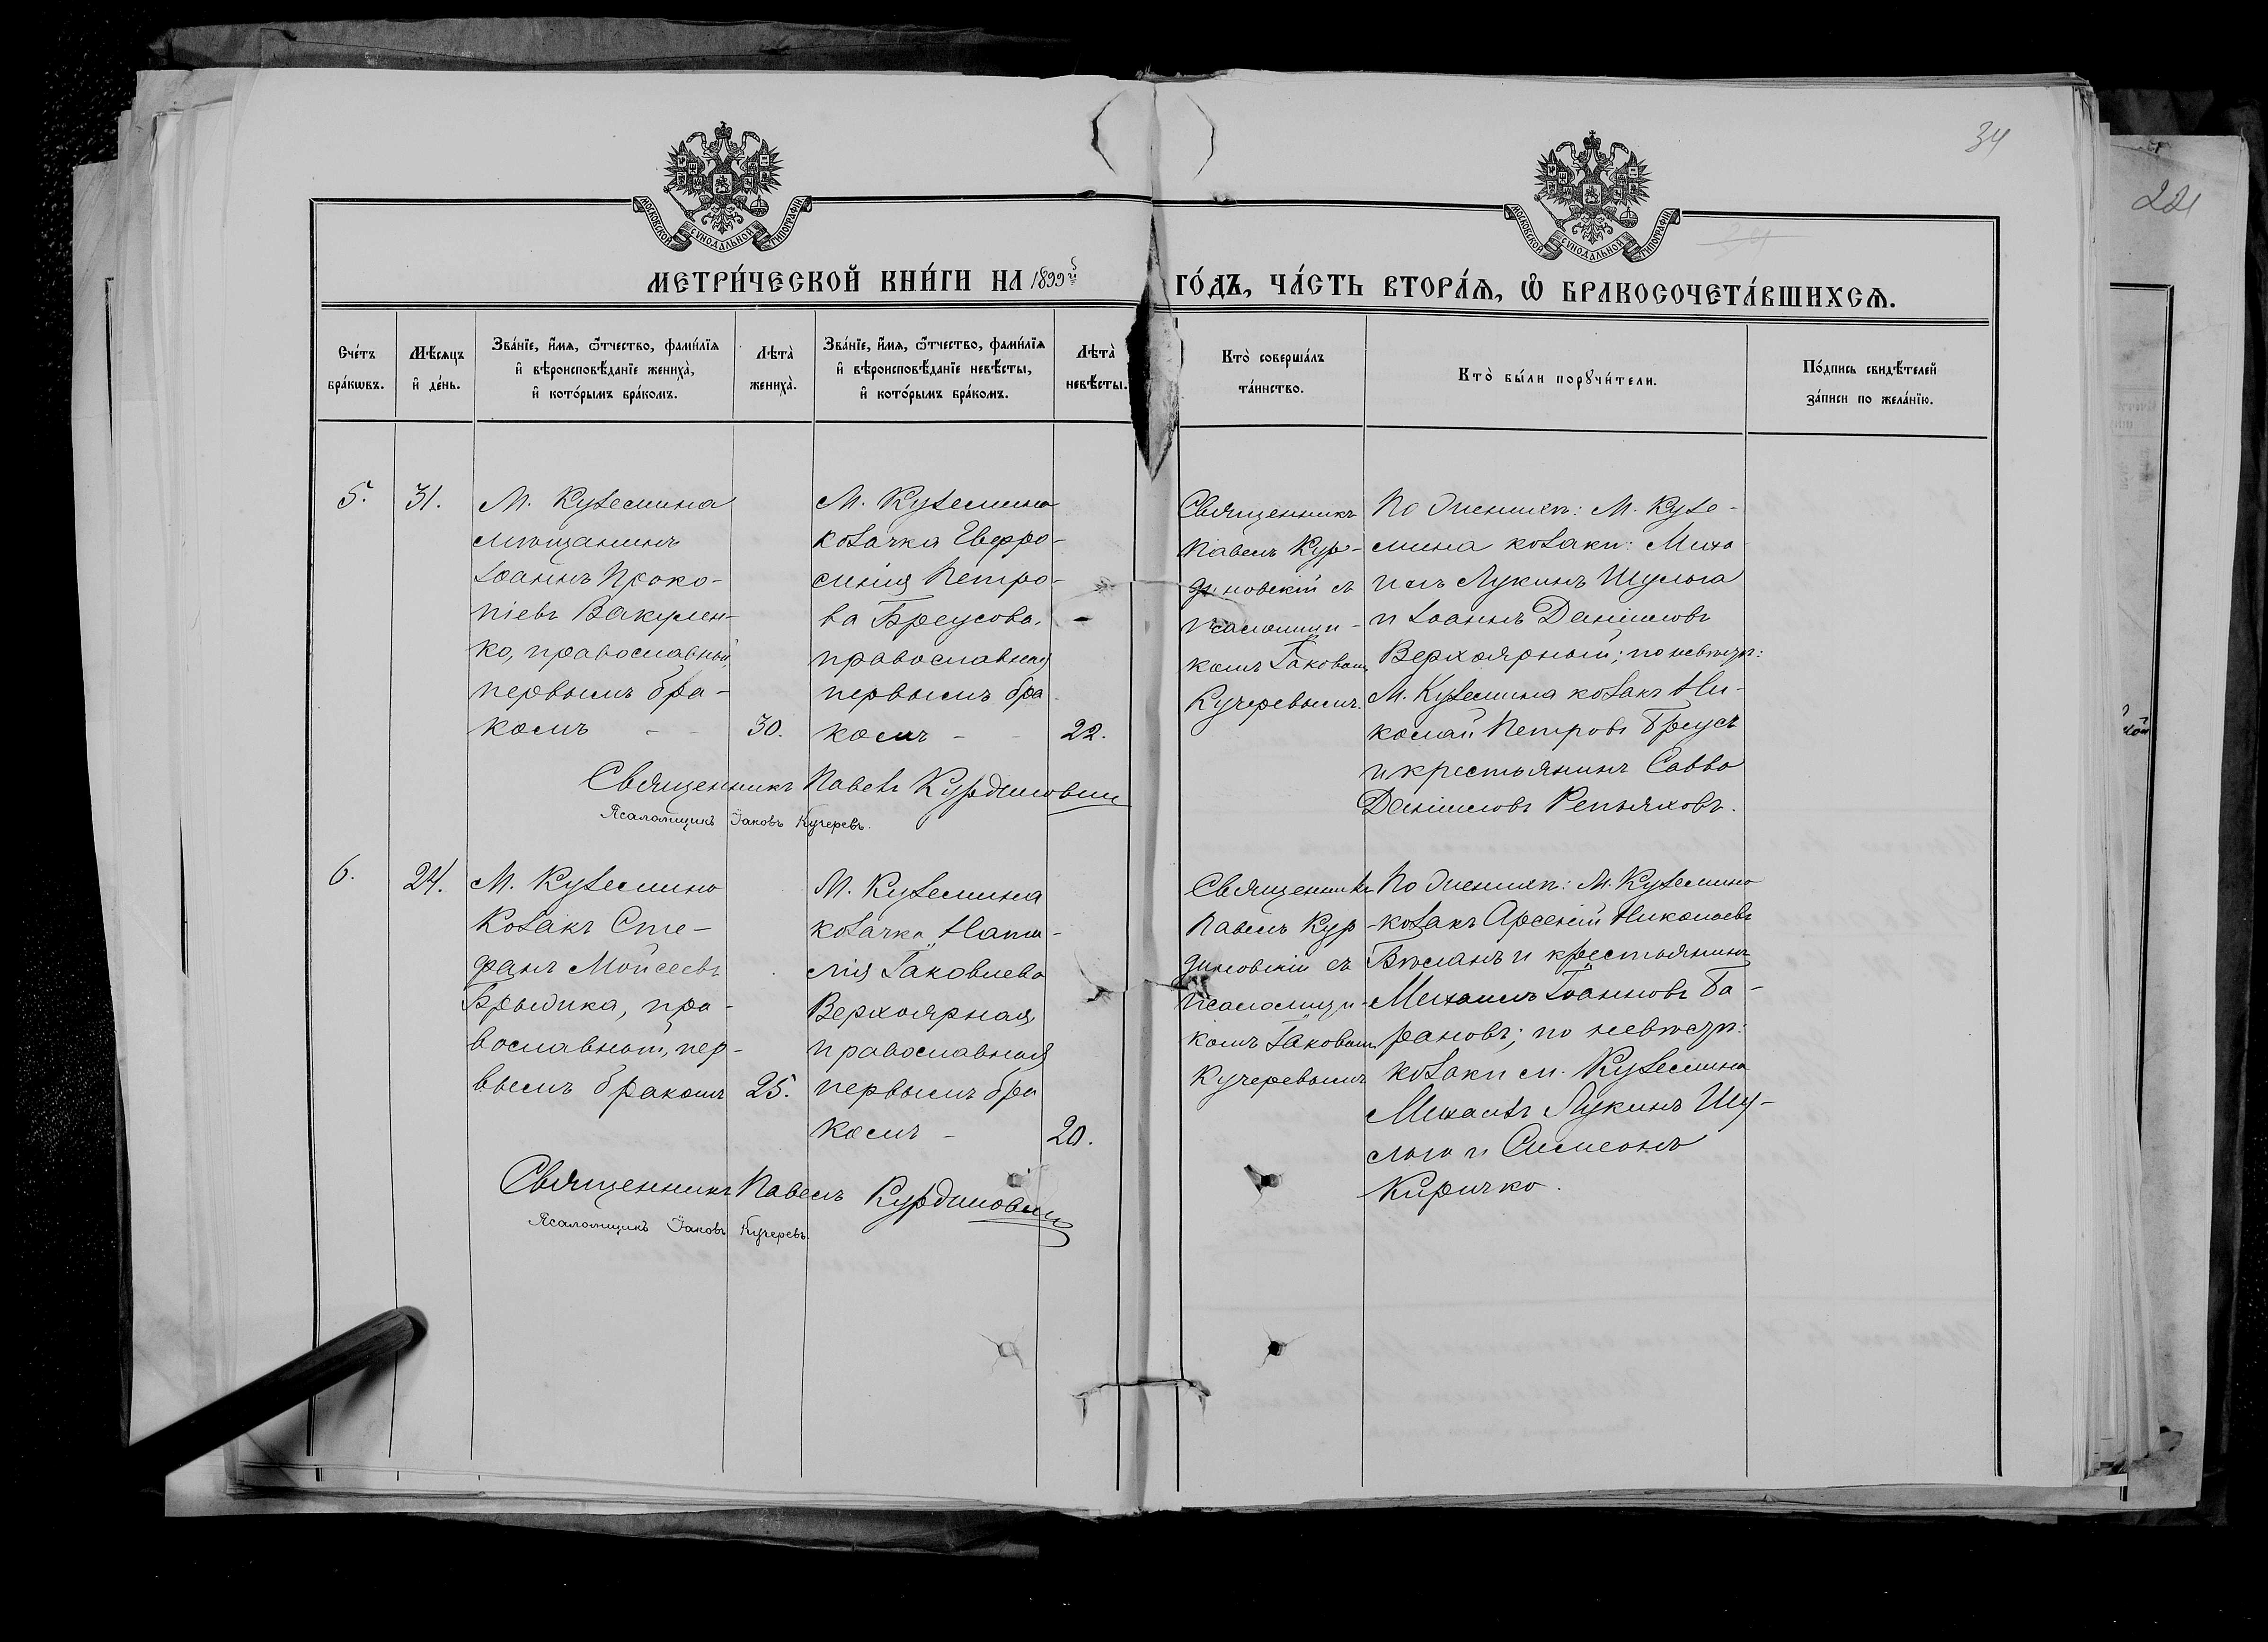 34
221
МОСКОВСКОЙ СѴНОДАЛЬНОЙ ТИПОГРАФІИ
МОСКОВСКОЙ СѴНОДАЛЬНОЙ ТИПОГРАФІИ
МЕТРИ́ЧЕСКОЙ КНИ́ГИ НА 1899й
ГО́ДЪ, ЧА́СТЬ ВТОРА́Ѧ, Ѡ҆ БРАКОСОЧЕТА́ВШИХСѦ.
Сче́тъ
бра́кѡвъ.
Мѣ́сяцъ
и҆ де́нь.
Зва́нїе, и҆́мя, ѻ҆́тчество, фами́лїя
и҆ вѣроисповѣ́данїе жениха̀,
и҆ кото́рымъ бра́комъ.
Лѣта̀
жениха̀.
Зва́нїе, и҆́мя, ѻ҆́тчество, фами́лїя
и҆ вѣроисповѣ́данїе невѣ́сты,
и҆ кото́рымъ бра́комъ.
Лѣта̀
невѣ́сты.
Кто̀ соверша́лъ
та́инство.
Кто̀ бы́ли порꙋчи́тели.
По́дпись свидѣ́телей
за́писи по жела́нїю.
5.
31.
М. Куземина
мѣщанинъ
Іоаннъ Проко-
піевъ Вакулен-
ко, православный,
первымъ бра-
комъ - -
30.
М. Куземина
козачка Евфро-
синія Петро-
ва Бреусова,
православная
первымъ бра
комъ - -
22.
Священникъ
Павелъ Кур-
диновскій съ
псаломщи-
комъ Іаковомъ
Кучеревымъ.
По женихѣ: М. Кузе-
мина козаки: Миха
илъ Лукинъ Шульга
и Іоаннъ Даніиловъ
Верхоярный; по невѣстѣ:
М. Куземина козакъ Ни-
колай Петровъ Бреусъ
и крестьянинъ Савва
Даніиловъ Репяховъ.
Священникъ Павелъ Курдиновскій
Псаломщикъ Іаковъ Кучеревъ.
6.
24.
М. Куземина
Козакъ Сте-
фанъ Моисеевъ
Брыдика, пра-
вославный, пер-
вымъ бракомъ
25.
М. Куземина
козачка Ната-
лія Іаковлева
Верхоярная,
православная
первымъ бра
комъ -
20.
Священникъ
Павелъ Кур
диновскій съ
псаломщи-
комъ Іаковомъ
Кучеревымъ
По женихѣ: М. Куземина
-козакъ Арсеній Николаевъ
и крестьянинъ
Михаилъ Іоанновъ Ба-
рановъ; по невѣстѣ:
козаки м. Куземина
Михаилъ Лукинъ Шу-
льга и Симеонъ
Киричко.
Священникъ Павелъ Курдиновскій
Псаломщикъ Іаковъ Кучеревъ.